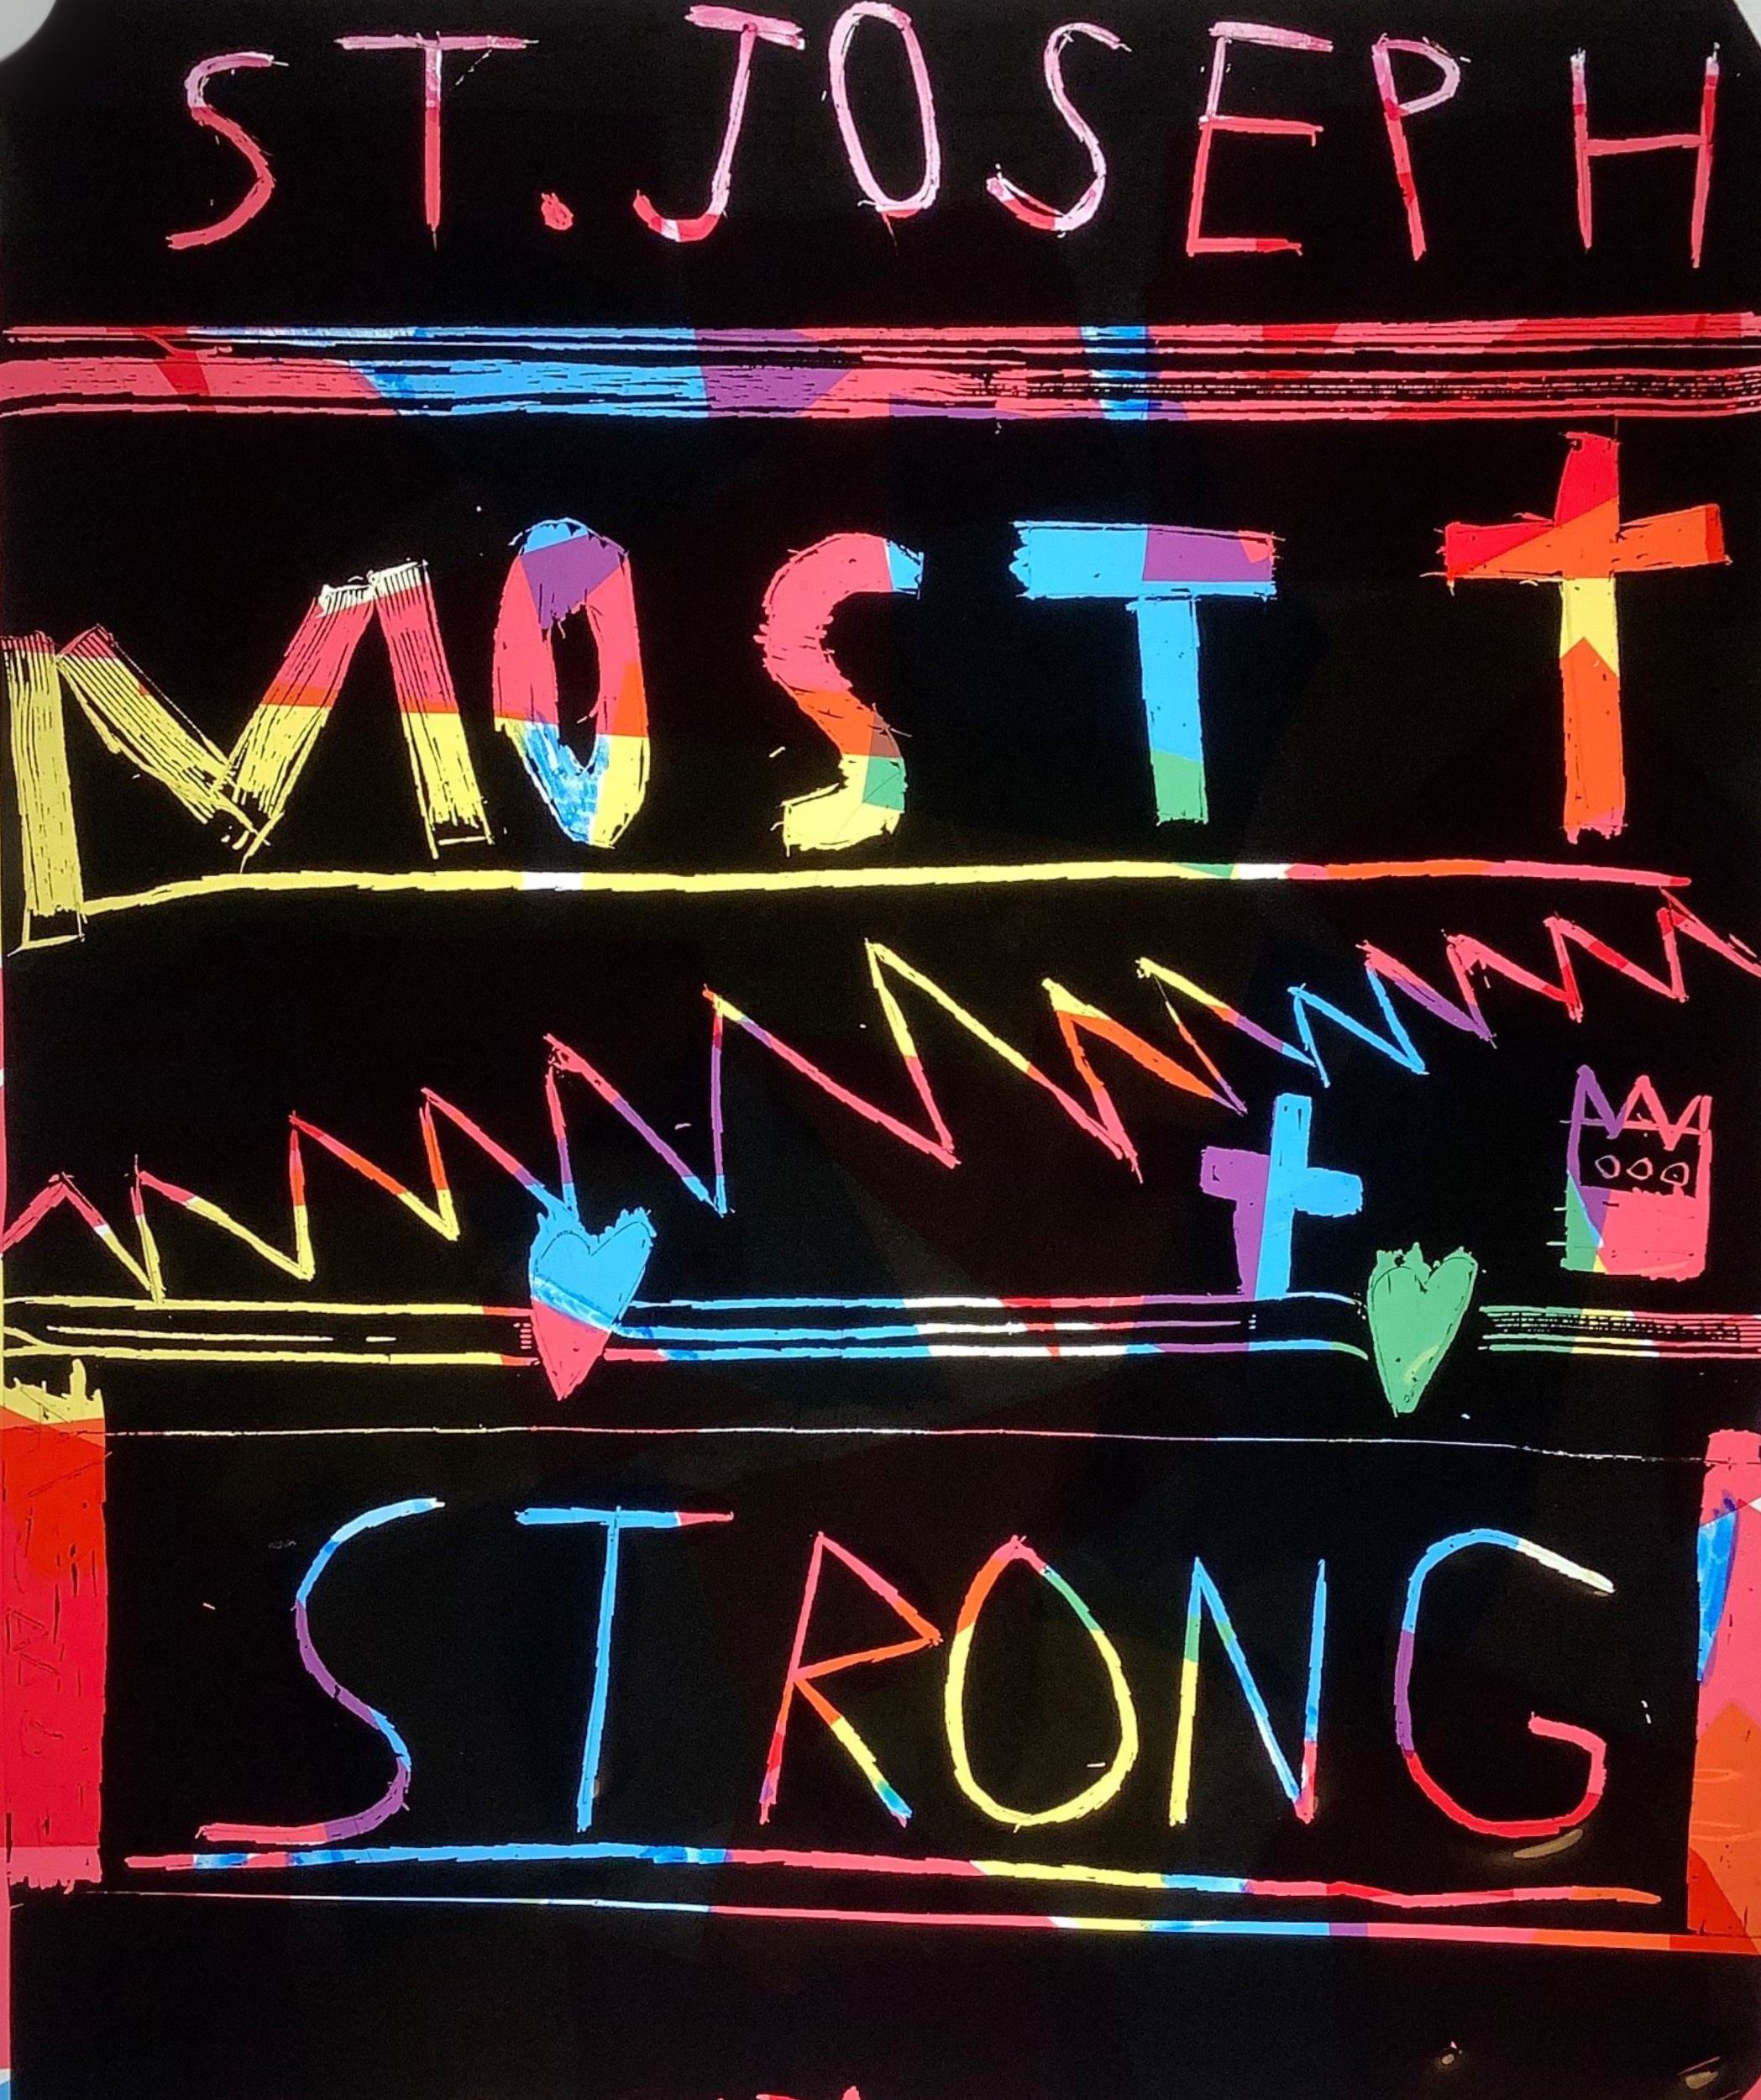 ST. JOSEPH
MOST
STRONG